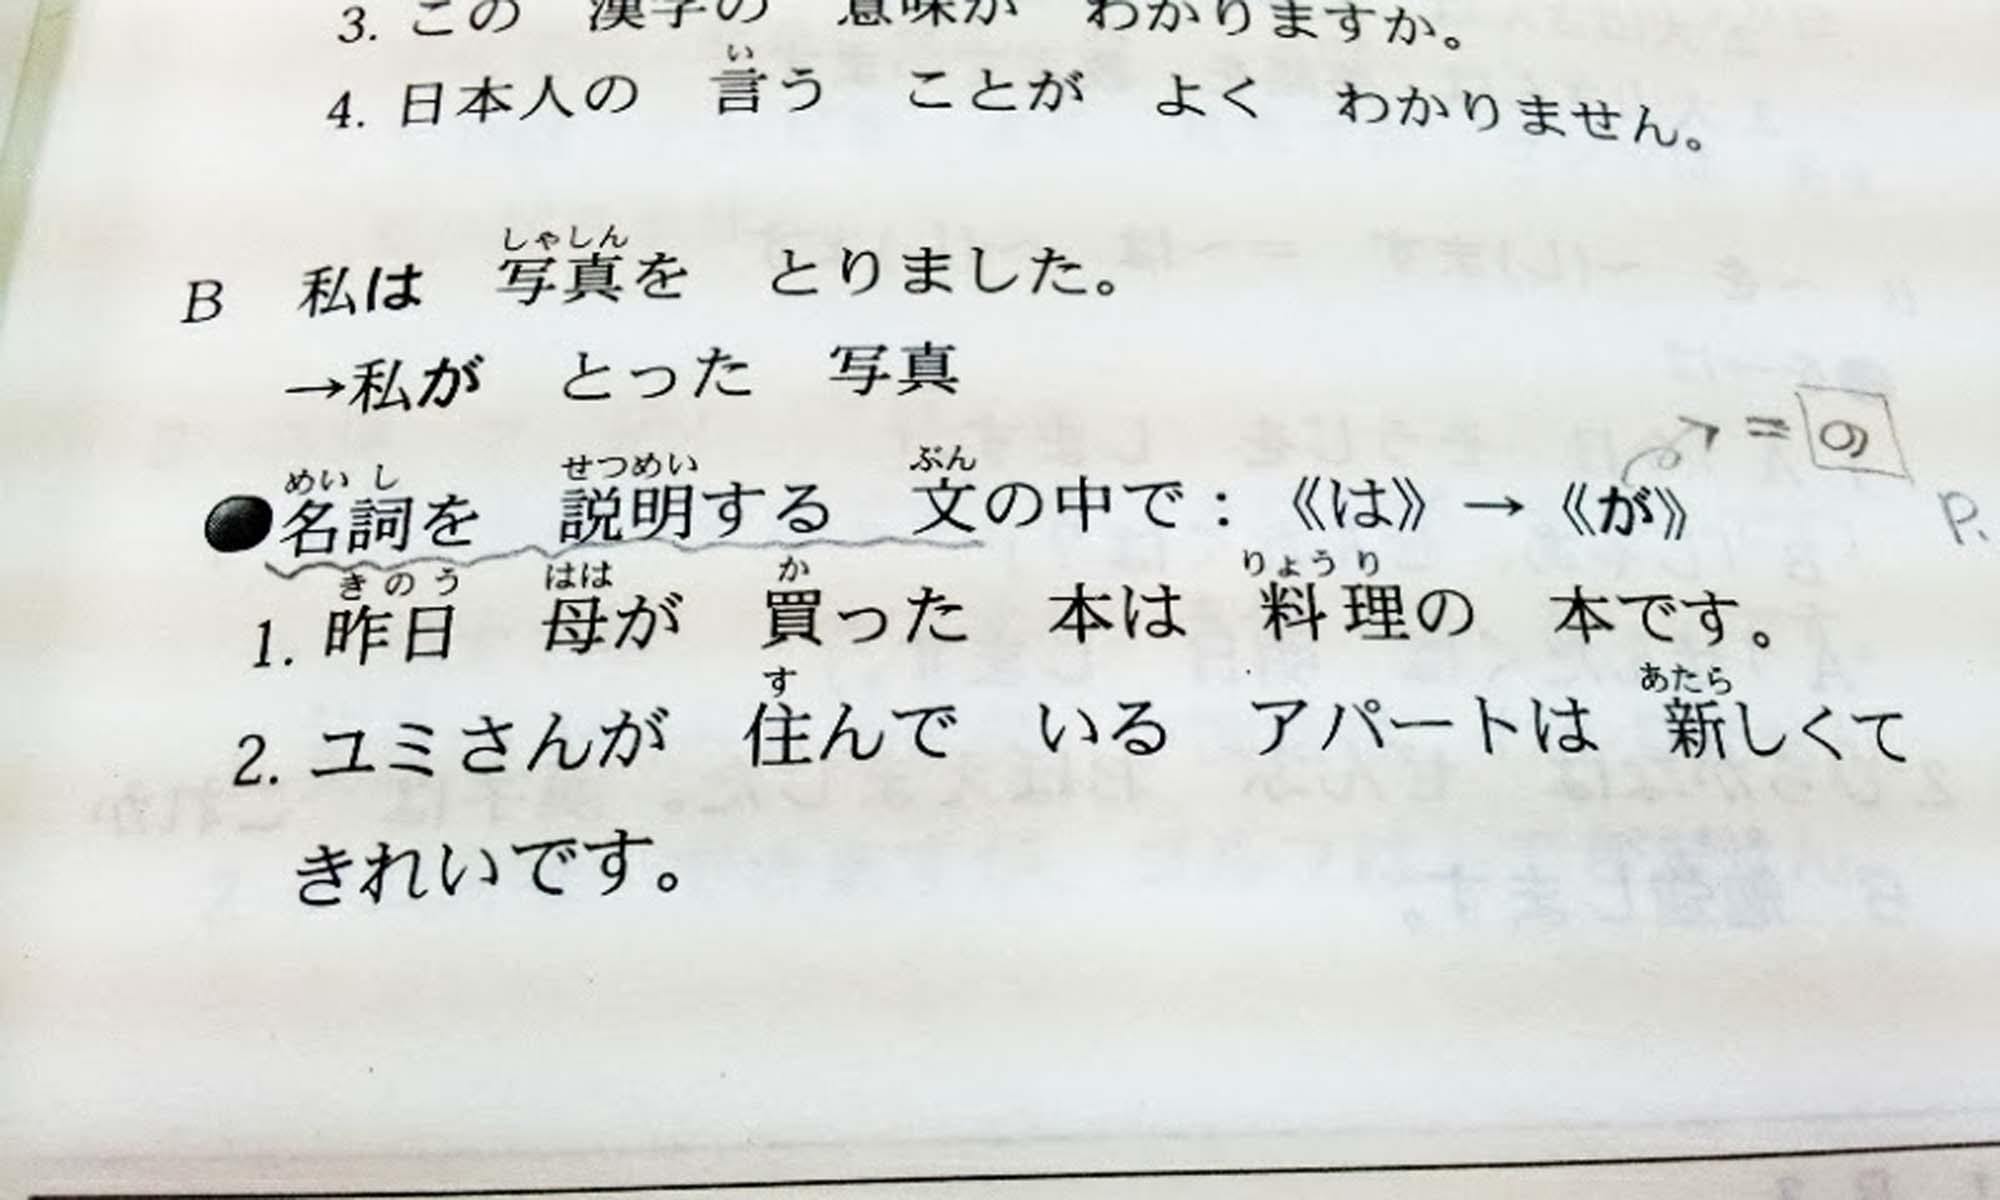 3. この 漢字の 意味が わかりますか。
い
4. 日本人の 言う ことが よく わかりません。
しゃしん
B 私は 写真を とりました。
→私が とった 写真
= の
めいし せつめい ぶん
●名詞を 説明する 文の中で：《は》→《が》
P.
きのう はは か りょうり
1. 昨日 母が 買った 本は 料理の 本です。
す あたら
2. ユミさんが 住んで いる アパートは 新しくて
きれいです。